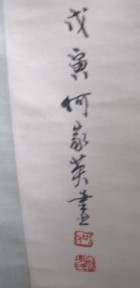 戊寅何家英画